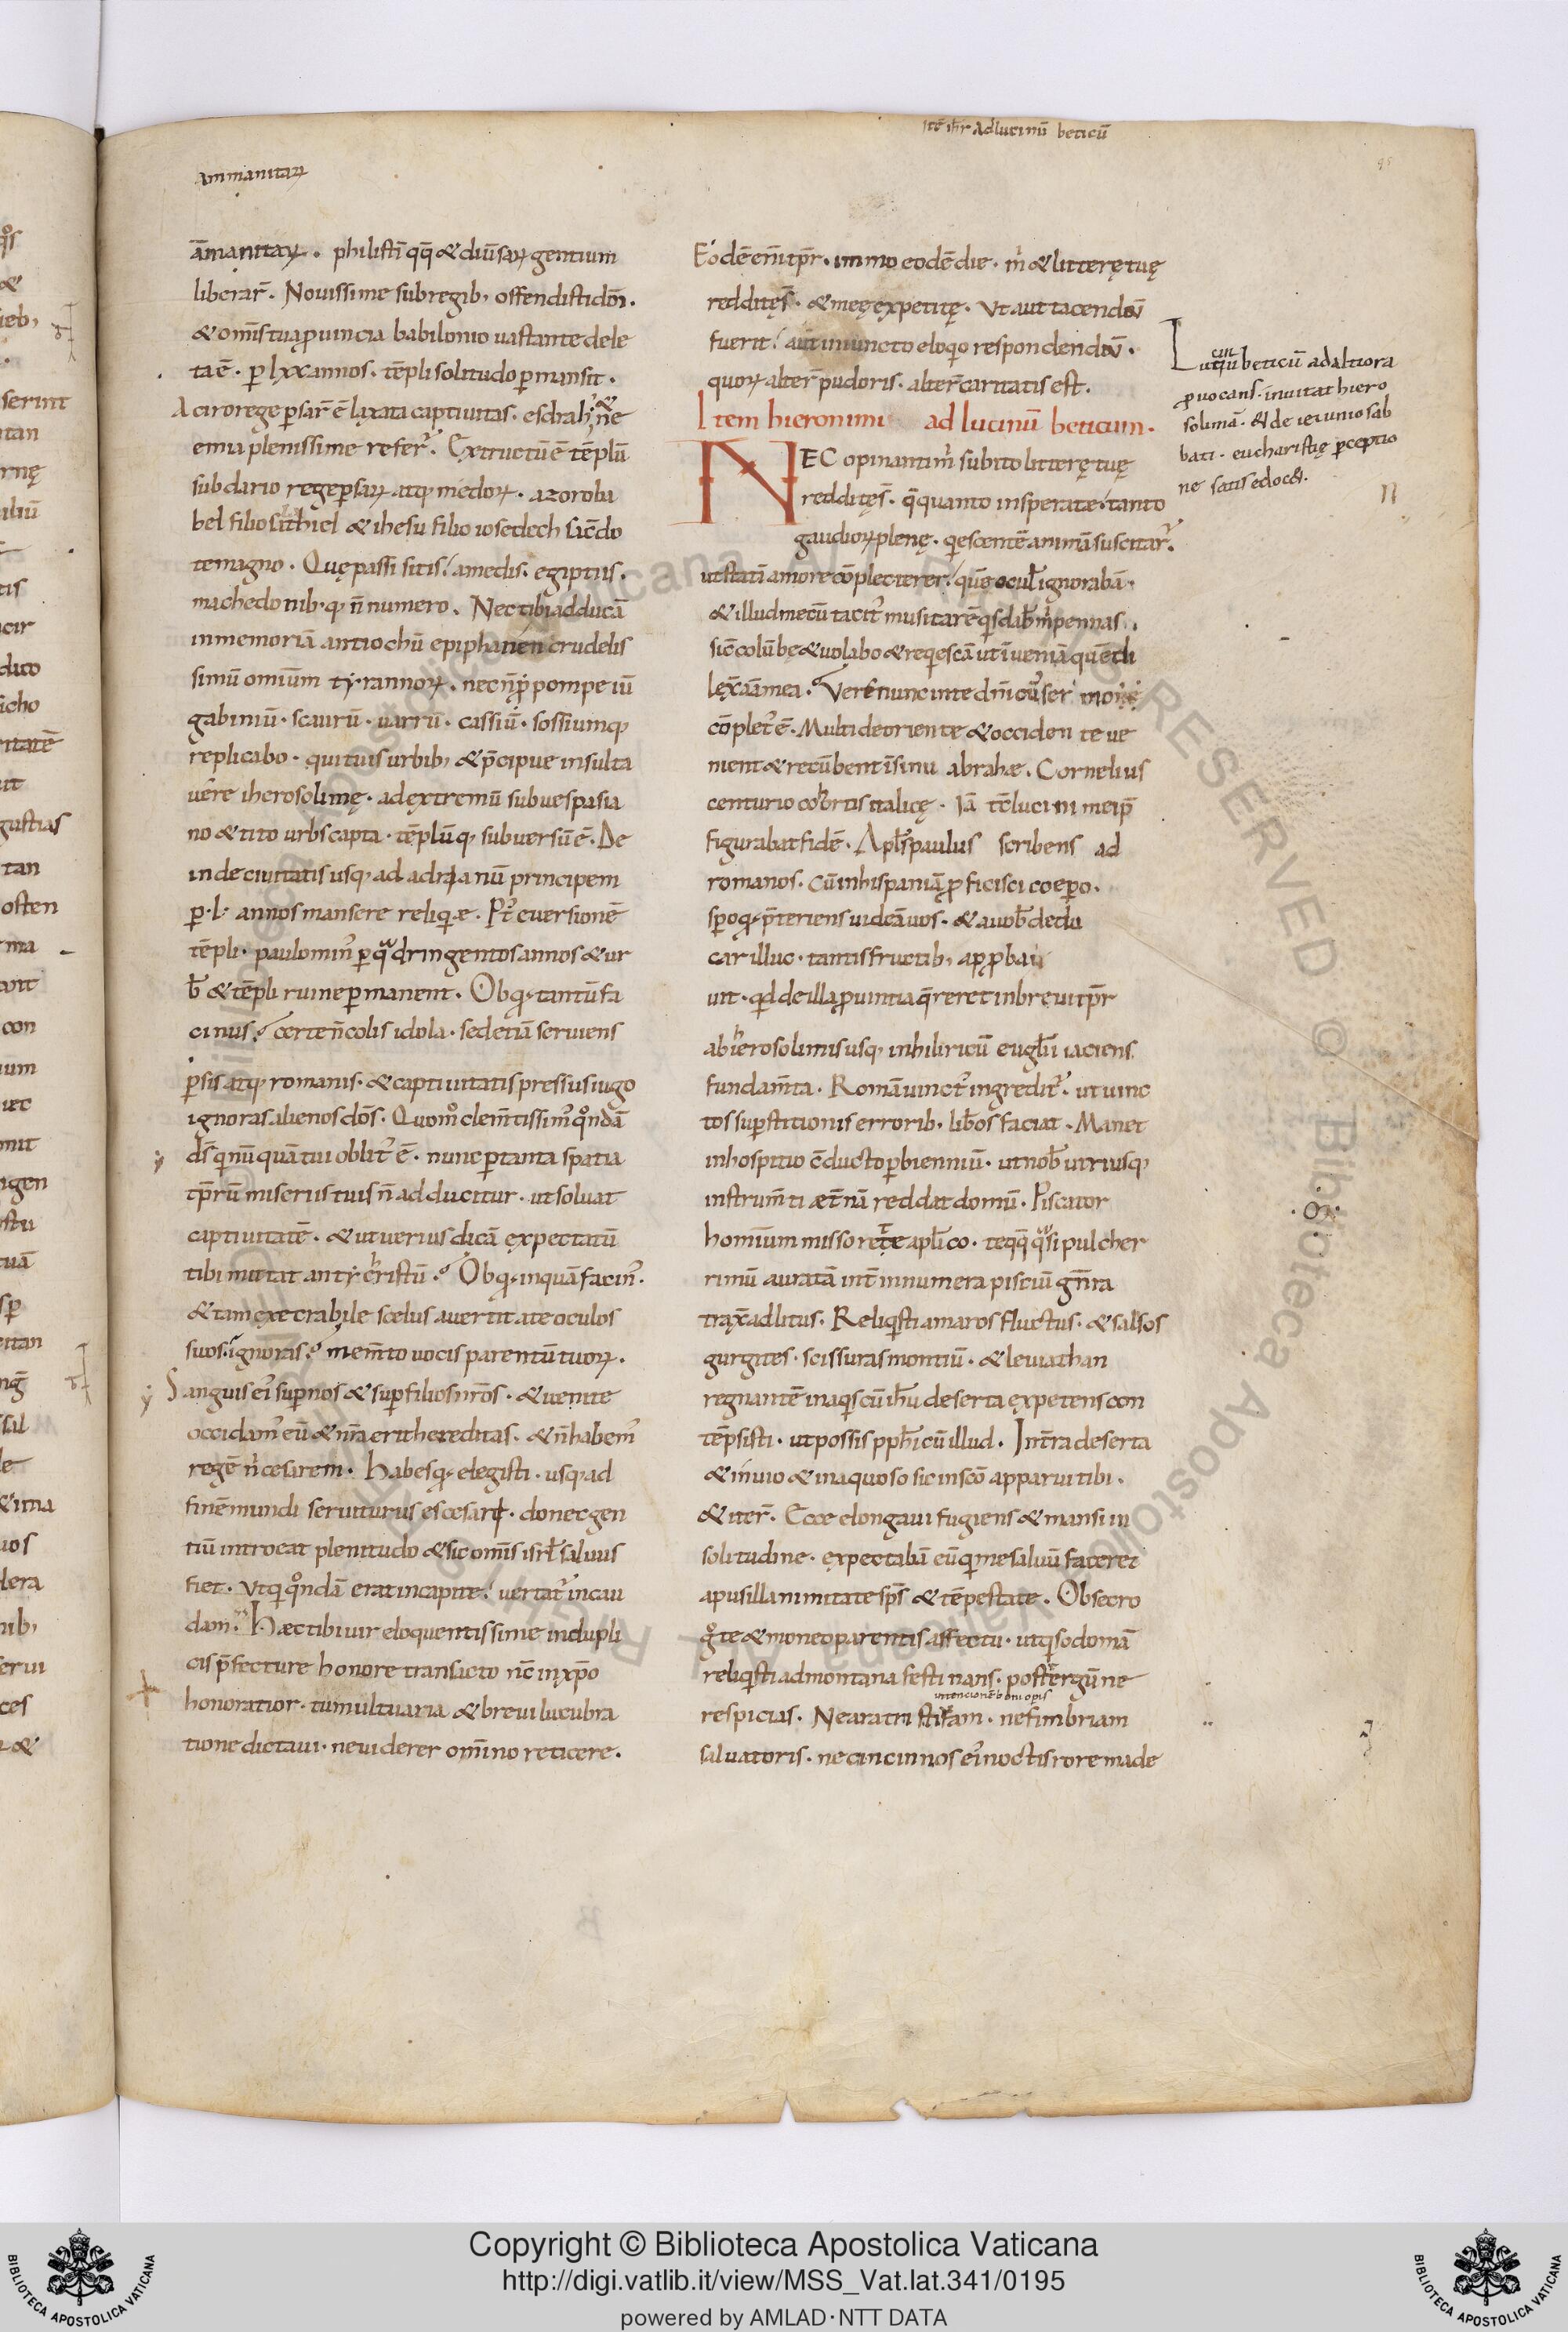 Itē ihr̄ ad lucinū beticū
ammanitaꝝ
95
āmanitaꝝ. philistī qq̄ & diūsaꝝ gentium
liberar̄. Nouissime sub regib; offendisti dōm.
& om̄is tua ꝓuincia babilonio uastante dele
ta ē. ꝑ lxx annos. tēpli solitudo ꝑmansit.
A ciro rege ꝑsaꝝ ē laxata captiuitas. esdrah & ne
emia plenissime refer̄. Extructū ē tēplū
sub dario rege ꝑsaꝝ atq; medoꝝ. a zoroba
bel filio salathiel & ihesu filio iosedech sacēdo
te magno. Quę passi sitis! a medis. egiptiis.
machedonib; q; n̄ numero. Nec tibi adducā
in memoriā antiochū epiphanen crudelis
simū omnium tyrannoꝝ. nec
gabiniū. scaurū. uarrū. cassiū. sossiumq;
replicabo. qui tuis urbib; & p̄cipue insulta
uere iherosolimę. ad extremū sub uespasia
no & tito urbs capta. tēplūq; subuersū ē. De
inde ciuitatis usq; ad adrianū principem
ꝑ. l. annos mansere reliquiæ. Pꝰ euersionē
tēpli. paulo minꝰ ꝑ quadringentos annos & ur
b̄ & tēpli ruine ꝑmanent. Ob qđ tantū fa
cinus? certe n̄ colis idola. sed etiā seruiens
ꝑsis atq; romanis. & captiuitatis pressus iugo
ignoras alienos dōs. Quom̊ clem̄tissimꝰ qͦndā
ds̄ qi nūquā tui oblitꝰ ē. nunc ꝑ tanta spatia
tp̄rū miseriis tuis n̄ adducitur. ut soluat
captiuitatē. & ut uerius dicā expectatū
tibi mittat antychristū? Ob qđ inquā facinꝰ.
& tam execrabile scelus auertit a te oculos
suos. ignoras? mem̄to uocis parentū tuoꝝ.
Sanguis eiꝰ suꝑ nos & suꝑ filios nr̄os. & uenite
occidamꝰ eū & nr̄a erit hereditas. & n̄ habemꝰ
regē n̄ cesarem. Habes qđ elegisti. usq; ad
finē mundi seruiturus es cesari. donec gen
tiū introeat plenitudo & sic omīs isrl̄ saluus
fiet. Vt qi qͦndā erat in capite! uertat̄ in cau
dam. Hæc tibi uir eloquentissime in dupli
cis p̄fecture honore transacto nc̄ in xp̄o
honoratior. tumultuaria & breui lucubra
tione dictaui. ne uiderer om̄ino reticere.
Eodē eni tp̄r. immo eodē die. m̄ & litterę tuę
redditę s̄. & meę expetitę. Vt aut tacendū
fuerit! aut iniuncto eloqio respondendū.
quoꝝ alterꝝ pudoris. alterꝝ caritatis est.
Item hieronimi ad lucinū beticum.
NEC opinanti m̄ subito litterę tuę
redditę s̄. q̄ quanto insperatæ! tanto
gaudioꝝ plenę. qiescentē animā suscitar̄.
ut statī amore cōplecterer! quē oculꝭ ignorabā.
& illud mecū tacitꝰ musitarē qis dabit m̄ pennas
sic̄ colūbę & uolabo & reqiescā ut īueniā quē di
lexit aīa mea. Vere nunc in te dn̄icus sermo
cōpletꝰ ē. Multi de oriente & occidente ue
nient & recūbent ī sinu abrahæ. Cornelius
centurio cohortis italicę. Iā tc̄ lucini mei p̄
figurabat fidē. Apl̄s paulus scribens ad
romanos. Cū in hispaniā ꝓficisci coepero.
spero qđ p̄teriens uideā uos. & a uob̄ dedu
car illuc. tantis fructib; ap
uit. qd de illa ꝓuintia q̄reret in breui tp̄r
ab hierosolimis usq; in hiliricū euglm̄ iaciens
fundam̄ta. Romā uinctꝰ ingredit̄. ut uinc
tos suꝑstitionis errorib; lib̄os faciat. Manet
in hospitio cōducto ꝑ bienniū. ut nob̄ utriusq;
instrum̄ti æt̄nā reddat domū. Piscator
hominum misso rete apl̄ico. te qq̄ quasi pulcher
rimū auratā int̄ innumera pisciū gn̄ra
traxit ad litus. Reliqisti amaros fluctus. & salsos
gurgites. scissuras montiū. & leuiathan
regnantē in aqis cū ihū deserta expetens con
tēpsisti. ut possis pph̄icū illud. In tr̄a deserta
& inuio & inaquoso sic in sc̄o apparui tibi.
& iter̄. Ecce elongaui fugiens & mansi in
solitudine. expectabā eū qi me saluū faceret
a pusillanimitate sp̄s & tēpestate. Obsecro
g̊ te & moneo parentis affectu. ut qi sodomā
reliqisti ad montana festinans. post tergū ne
intentionē boni opis
respicias. Ne aratri stiuam. ne fimbriam
saluatoris. ne cincinnos eiꝰ noctis rore made
Lucinū beticū ad altiora
ꝓuocans. inuitat hiero
solimā. & de ieiunio sab
bati. eucharistię ꝑceptio
ne satis edocet.
Copyright © Biblioteca Apostolica Vaticana
http://digi.vatlib.it/view/MSS_Vat.lat.341/0195
powered by AMLAD·NTT DATA
BIBLIOTECA APOSTOLICA VATICANA
BIBLIOTECA APOSTOLICA VATICANA